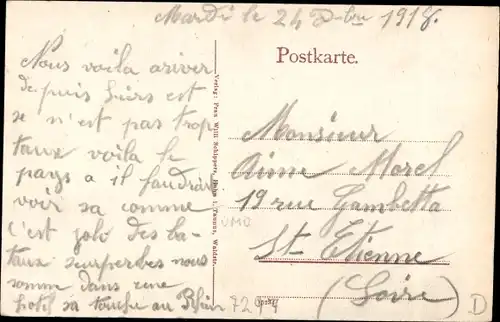 Mardi le 24 Dbre 1918.
Postkarte.
Nous voila ariver
depuis hiers est
se n'est pas trop
taux voila le
pays a il faudrai
voir sa comme
C'est joli des ba-
taux seurperbes nous
somme dans une
hotif sa touche au Rhin
Verlag: Frau Willi Schipper, Hahn i. Taunus, Waldstr.
Monsieur
Aime Morel
19 rue Gambetta
St Etienne
(Loire)
UMO
7274
D